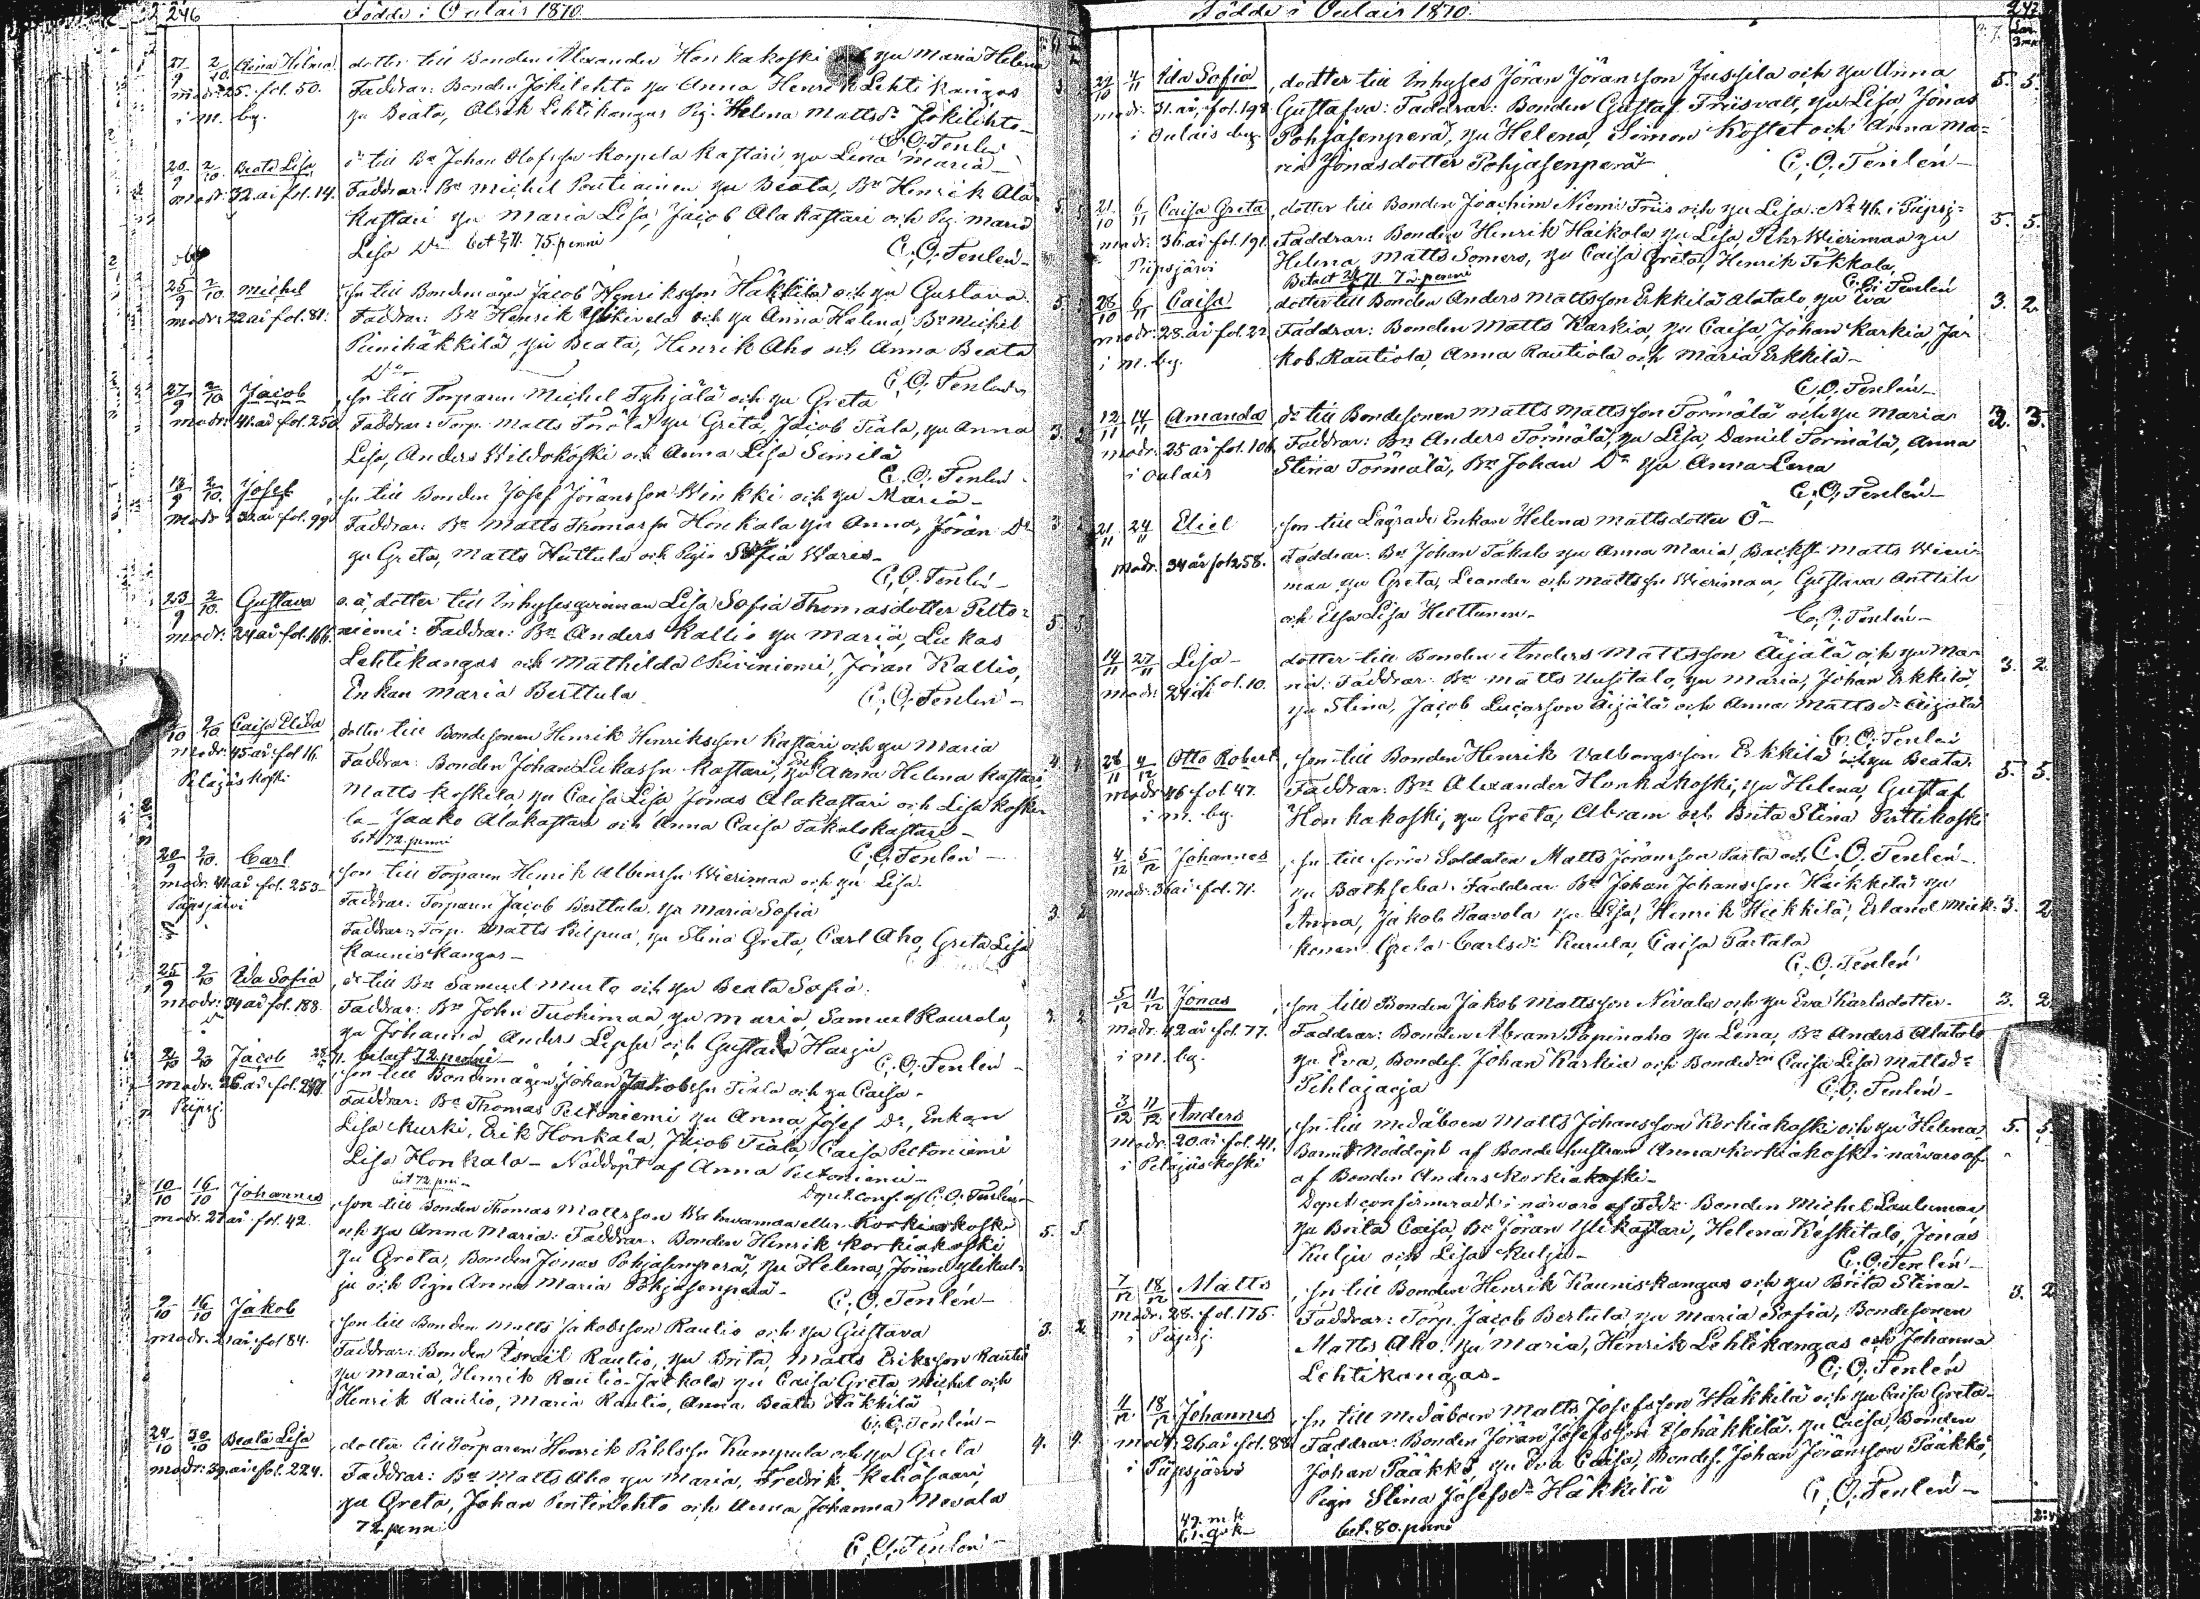 246
Födde i Oulais 1870.
27/9 2/10. Aina Hilma
dotter till Bonden Alexander Honkakoski och hu Maria Helena
modr: 25. fol. 50.
Faddrar: Bonden Jokilehto hu Anna Henrik Lehtikangas
i m. by.
hu Beata, Olrik Lehtikangas Pig. Helena Mattsdr Jokilehto
C. O. Tenlén
20/9 2/10. Beata Lisa
dr till Bn Johan Olofsson Korpela Kastari, hu Lena Maria
modr: 32. år fol. 14.
Faddrar: Bn Michel Pontiainen hu Beata, Bn Henrik Ala-
kastari hu Maria Lisa, Jacob Alakastari och Pig. Maria
Lisa Do bet 75. penni
C. O. Tenlén
25/9 2/10. Michel
Son till Bondemågen Jacob Henriksson Häkkilä och hu Gustava
modr: 22 år fol. 81.
Faddrar: Bn Henrik och hu Anna Helena, Bn Michel
Punihäkkilä, hu Beata, Henrik Aho och Anna Beata
Do
C. O. Tenlén
27/9 2/10 Jacob
Sn till Torparen Michel Tyhjälä och hu Greta
modr: 41. år fol. 250
Faddrar: Torp. Matts hu Greta, Jacob Tiala, hu Anna 3. 2
Lisa, Anders Wildokoski och Anna Lisa Similä
C. O. Tenlén
18/9 2/10. Josef
Sn till Bonden Josef Jöransson Winkki och hu Maria
modr: 32 år fol. 99
Faddrar: Bn Matts Thomasson Honkala hu Anna, Jöran Do
hu Greta, Matts Huttula och Pign Sofia Wares
C. O. Tenlén
23/9 2/10. Gustava
o. ä. dotter till Inhyseqvinnan Lisa Sofia Thomasdotter Pelto-
modr: 24 år fol. 166.
niemi: Faddrar: Bn Anders Kallio hu Maria, Lukas 5. 5
Lehtikangas och Mathilda Kiviniemi, Jöran Kallio,
Enkan Maria Berttula
C. O. Tenlén
2/10 Caisa Elida
dotter till Bondesonen Henrik Henriksson Kastari och hu Maria
modr: 45 år fol 16.
Faddrar: Bonden Johan Lukasson Kastari, hu Anna Helena Kastari, 4. 4
Pelajäskoski
Matts Koskela hu Caisa Lisa Jonas Alakastari och Lisa Koske
la - Jaako Alakastari och Anna Caisa Takalokastari
bet 72 penni
C. O. Tenlén
20/9 2/10. Carl
Son till Torparen Henrik Albinsson Wierimaa och hu Lisa.
modr: 41 år fol. 253
Faddrar: Torparen Jacob Berttula, hu Maria Sofia
Piipsjärvi
Faddrar: Torp. Matts Kilpua, hu Stina Greta, Carl Aho, Greta Lisa 3. 2
Kauniskangas
25/9 2/10 Ida Sofia
dr till Bn Samuel Murto och hu Beata Sofia.
modr: 34 år fol. 188
Faddrar: Bn John Tuohimaa, hu Maria, Samuel Raurala, 3. 2
hu Johanna Anders och Gustava Harju
betalt 72. penni
C. O. Tenlén
2/10 2/10 Jacob
Son till Bondemågen Johan Jakobsson Tiala och hu Caisa
modr: 26 år fol. 247
Faddrar: Bn Thomas Peltoniemi hu Anna, Josef Do, Enkan
Piipsj.
Lisa Kurki, Erik Honkala, Jacob Tiala, Caisa Peltoniemi
Lisa Honkala - Nöddöpt af Anna Peltoniemi
bet 72 pni
Dopet conf. af C. O. Tenlén
10/10 16/10 Johannes
Son till Bonden Thomas Mattsson eller Korkiakoski
modr: 27 år fol. 42.
och hu Anna Maria: Faddrar: Bonden Henrik Korkiakoski 5. 5
hu Greta, Bonden Jonas Pohjasenperä, hu Helena, Jöran Ylikul-
ju och Pign Anna Maria Pohjasenperä
C. O. Tenlén
9/10 16/10 Jakob
Son till Bonden Matts Jakobsson Rautio och hu Gustava
modr: 21 år fol 84.
Faddrar: Bonden Israel Rautio, hu Brita, Matts Eriksson Rautio 3. 2
hu Maria, Henrik Rautio Jackola hu Caisa Greta Michel och
Henrik Rautio, Maria Rautio, Anna Beata Häkkilä
C. O. Tenlén
24/10 30/10 Beata Lisa
dotter till Torparen Henrik Pehlsson Kumpula och hu Greta 4. 4
modr: 39 år fol. 224.
Faddrar: Bn Matts Aho hu Maria, Fredrik Kahasaari,
hu Greta, Johan Pentinlehto och Anna Johanna Nevala
72 penni
C. O. Tenlén
Födde i Oulais 1870. 247
27/10 4/11 Ida Sofia
dotter till Inhyses Jöran Jöransson Jussila och hu Anna 5. 5.
modr: 31. år fol. 198
Gustafva: Faddrar: Bonden Gustaf Friisvall, hu Lisa, Jonas
i Oulais by
Pohjasenperä, hu Helena, Simon Kostet och Anna Ma-
ria Jonasdotter Pohjasenperä
C. O. Tenlén
21/10 6/11 Caisa Greta
dotter till Bonden Joachim Niemi Friis och hu Lisa. No 46 i Piipsj-
modr: 36 år fol. 191
Faddrar: Bonden Henrik Haikola hu Lisa, Pehr Wierimaa hu 5. 5.
Piipsjärvi
Helena, Matts Somero, hu Caisa Greta, Henrik Tekkala,
Betalt 71 72 penni
C. O. Tenlén
28/10 6/11 Caisa
dotter till Bonden Anders Mattsson Erkkilä Alatalo hu Eva 3. 2
modr: 28. år fol. 22
Faddrar: Bonden Matts Karkia, hu Caisa, Johan Karkia, Ja-
i m. by.
kob Rautiola, Anna Rautiola och Maria Erkkilä
C. O. Tenlén
12/11 14/11 Amanda
dr till Bondesonen Matts Mattsson Törmälä och hu Maria 3. 3.
modr: 25 år fol. 106
Faddrar: Bn Anders Törmälä, hu Lisa, Daniel Törmälä, Anna
i Oulais
Stina Törmälä, Bn Johan Do hu Anna Lena
C. O. Tenlén
21/11 24/11 Eliel
Son till Lagrade Enkan Helena Mattsdotter Ö
modr. 34 år fol 258.
Faddrar: Bn Johan Takalo hu Anna Maria, Backst. Matts Wieri-
maa hu Greta, Leander och Mattsson Wierimaa, Gustava Anttila
och Elsa Lisa Helttunen
C. O. Tenlén
14/11 27/11 Lisa
dotter till Bonden Anders Mattsson Äijälä och hu Ma-
modr: 24 år fol. 10.
ria: Faddrar: Bn Matts Uusitalo, hu Maria, Johan Erkkilä, 3. 2.
hu Stina, Jacob Lucasson Äijälä och Anna Mattsdr Äijälä
C. O. Tenlén
28/11 4/12 Otto Robert
Son till Bonden Henrik Valborgsson Erkkilä och hu Beata. 5. 5.
modr: 46 fol 47.
Faddrar: Bn Alexander Honkakoski, hu Helena, Gustaf
i m. by.
Honkakoski, hu Greta, Abram och Brita Stina Perttikoski
C. O. Tenlén
4/12 5/12 Johannes
Sn till förre Soldaten Matts Jöransson Parta och
modr: 36 år fol. 71.
hu Bathseba. Faddrar Bn Johan Johansson Häkkilä hu
Anna, Jakob Paavola hu Lisa, Henrik Häkkilä, Erland Miek- 3. 2
konen Greta Carlsdr Karula, Caisa Partala
C. O. Tenlén
5/12 11/12 Jonas
Son till Bonden Jakob Mattsson Nivala och hu Eva Karlsdotter. 3. 2
modr: 42 år fol. 77.
Faddrar: Bonden Abram Papinaho hu Lena, Bn Anders Alatalo
i m. by.
hu Eva, Bondes. Johan Karkia och Bondedr Caisa Lisa Mattsdr
Pihlajaoja
C. O. Tenlén
3/12 11/12 Anders
Sn till medåboen Matts Johansson Korkiakoski och hu Helena. 5. 5.
modr: 20. år fol. 41.
Barnet Nöddöpt af Bonde hustrun Anna Korkiakoski i närvaro af
i Petäjäskoski
af Bonden Anders Korkiakoski
Dopet confirmeradt i närvaro af Fadr. Bonden Michel Laukunen
hu Brita Caisa, Bn Jöran Ylikastari, Helena Keskitalo, Jonas
Kulju och Lisa Kulju
C. O. Tenlén
7/12 18/12 Matts
Sn till Bonden Henrik Kauniskangas och hu Brita Stina 3. 2
modr: 28. fol. 175.
Faddrar: Torp. Jacob Bertula hu Maria Sofia, Bondesonen
i Piipsj.
Matts Aho. hu Maria, Henrik Lehtikangas och Johanna
Lehtikangas
C. O. Tenlén
11/12 18/12 Johannes
Sn till medåboen Matts Josefsson Häkkilä och hu Caisa Greta
modr: 26 år fol. 88
Faddrar: Bonden Jöran Josefsson Isohäkkilä. hu Caisa, Bonden
i Piipsjärvi
Johan Pääkkö, hu Eva Caisa, Bondes. Johan Jöransson Pääkkö,
Pign Stina Josefsdr Häkkilä
C. O. Tenlén
49. m k
61. qvk
bet. 80. penni